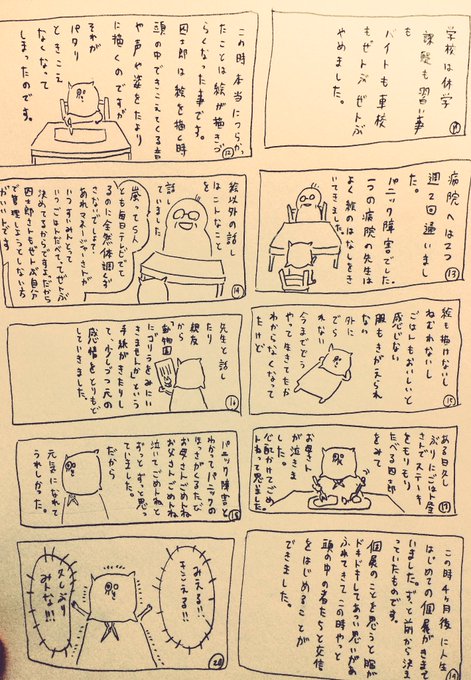 学校は休学
課題も習い事
も
バイトも車校
もぜんぶぜんぶ
やめました。
⑪
この時本当につらか
ったことは絵が描きづ
らくなった事です。
四士郎は絵を描く時
頭の中できこえてくる音
や声や姿をたより
に描くのですが
それが
パタリ
ときこえ
なくなって
しまったのです。
⑫
病院へは2つ
週2回通いまし
た。
パニック障害でした。
一つの病院の先生は
よく絵のはなしをき
いてきました。
⑬
絵以外の話し
はこんなこと
話し
ていました
嵐ってら人
とも毎日テレビでて
るのに全然体調くず
さないでしょ
あれマネージャーさんが
いつごはんたべて、ってぜんぶ
いつすいみんとって
決めてるからできる。だから
四士郎さんもぜんぶ自分
で管理しようとしない方
がいいんです。
⑭
絵も描けないし
ねむれないし
ごはんもおいしいと
感じないし
服もきがえられ
ない
外に
でら
れない
今までどう
やって生きてたか
わからなくなって
たけど
⑮
先生と話し
たり
親友
から
「動物園
にゴリラをみにい
きませんか」という
手紙がきたりし
て、少しづつ元の
感情をとりもど
していきました。
⑯
ある日久し
ぶりにごはん屋
さんでステーキ
をもりもり
たべる四士郎
をみて
お母さん
が泣きま
した。
心配かけてごめ
んねって思いました
⑰
パニック障害と
わかってパニックの
ほっさがくるたび
お父さんごめんね
お母さんごめんね
泣いてごめんねと
ずっとずっと思っ
ていました。
だから
元気になれて
うれしかった。
⑱
この時4ヶ月後に人生
はじめての個展がきまって
いました。ずっと前から決ま
っていたものです。
個展のことを思うと胸が
ドキドキしてあつい思いがあ
ふれてきてこの時やっと
頭の中の者たちと交信
をはじめることが
できました。
⑲
みえる!!
きこえる!!
久しぶり
みんな!!!
⑳